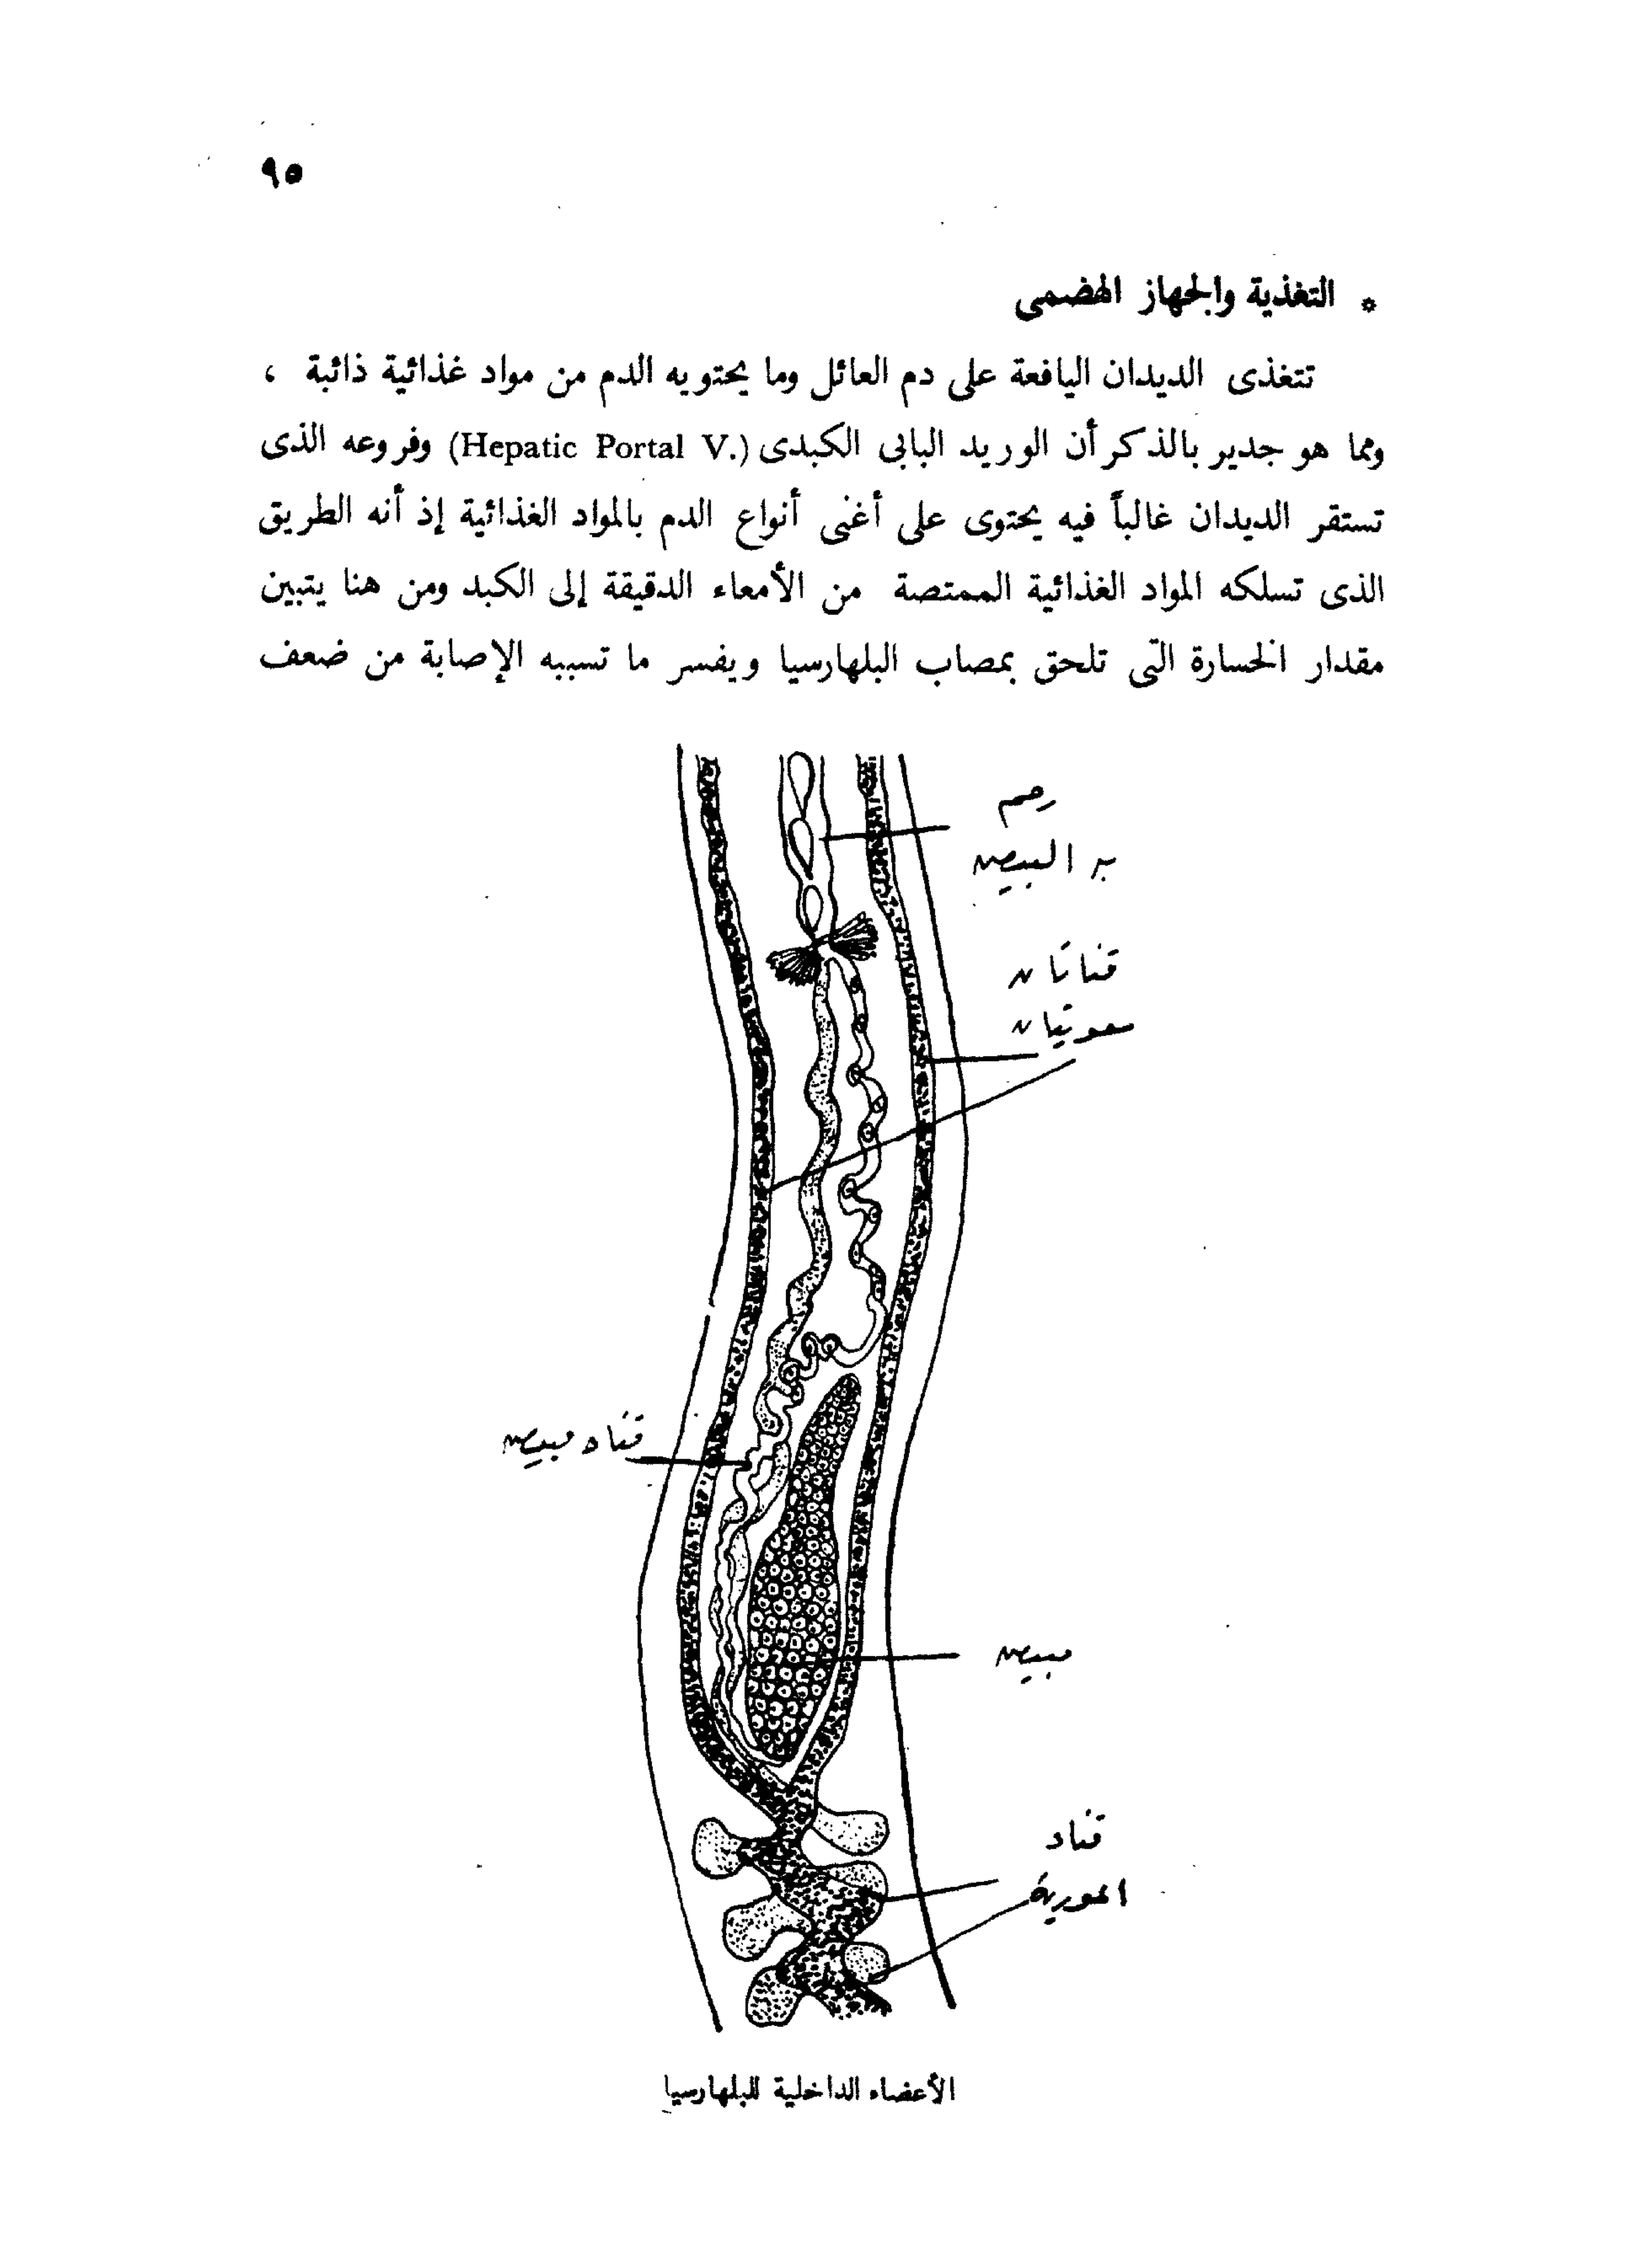 ٩٥
* التغذية والجهاز الهضمى
تتغذى الديدان اليافعة على دم العائل وما يحتويه الدم من مواد غذائية ذائبة ،
ومما هو جدير بالذكر أن الوريد البابى الكبدى (Hepatic Portal V.) وفروعه الذى
تستقر الديدان غالباً فيه يحتوى على أغنى أنواع الدم بالمواد الغذائية إذ أنه الطريق
الذى تسلكه المواد الغذائية الممتصة من الأمعاء الدقيقة إلى الكبد ومن هنا يتبين
مقدار الخسارة التى تلحق بمصاب البلهارسيا ويفسر ما تسببه الإصابة من ضعف
رحم
به البيض
قناتان
معويتان
قناه مبيض
مبيض
قناه
الأعضاء الداخلية للبلهارسيا